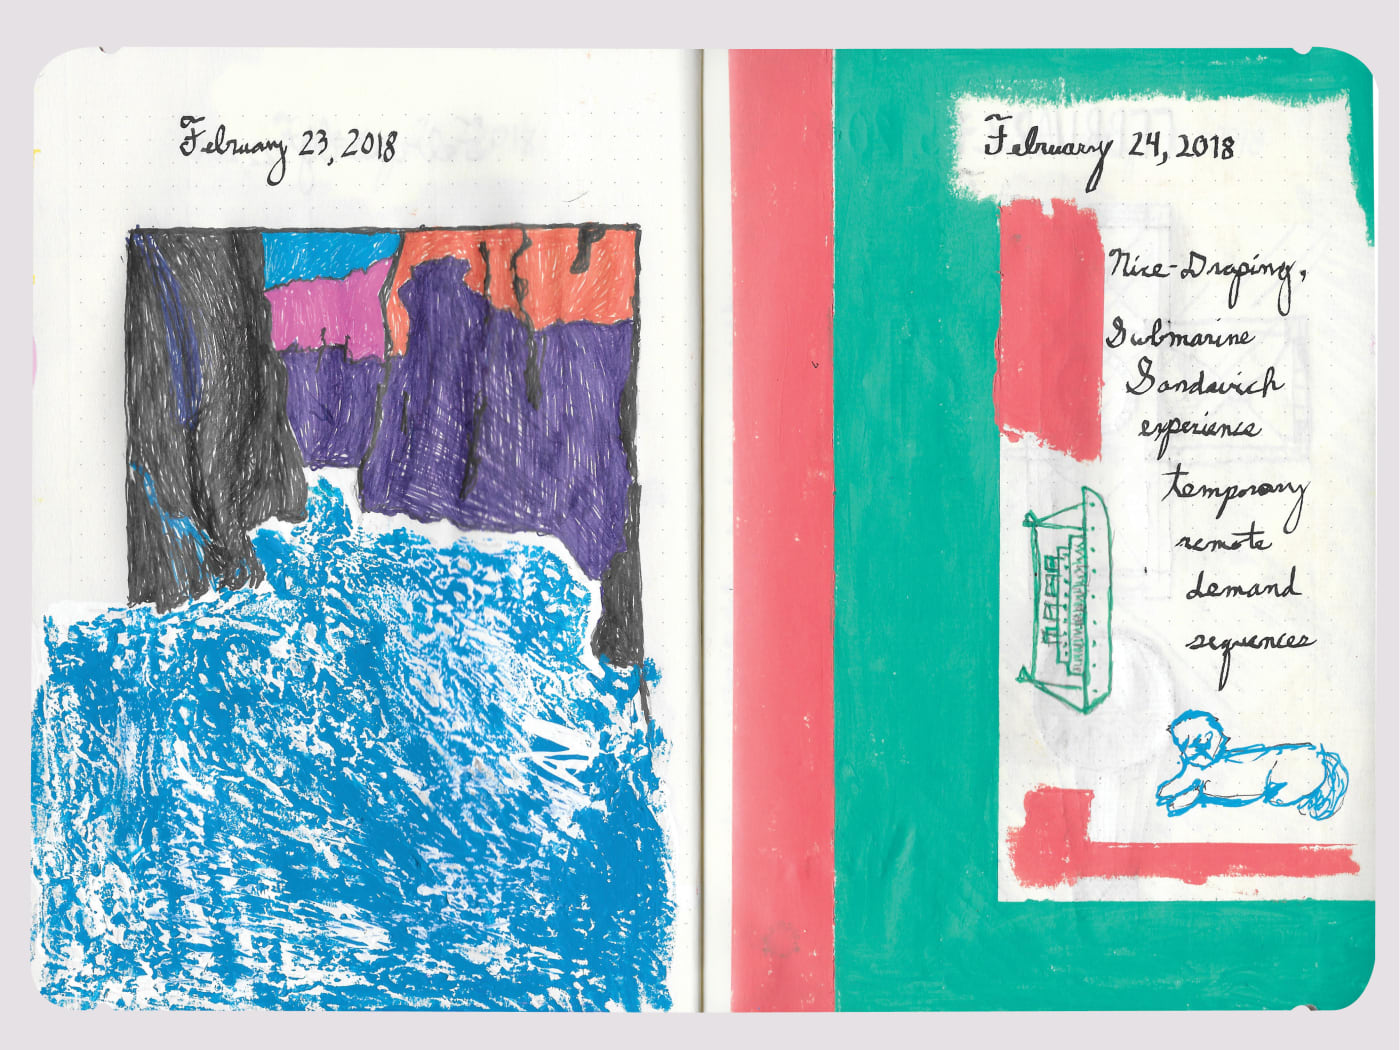 February 23, 2018
February 24, 2018
Nice-Draping,
Submarine
Sandwich
experience
temporary
remote
demand
sequences